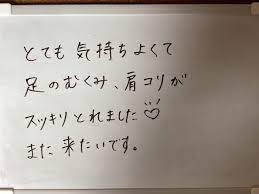 とても 気持ちよくて
足のむくみ、肩コリが
スッキリ とれました♡
また 来たいです。